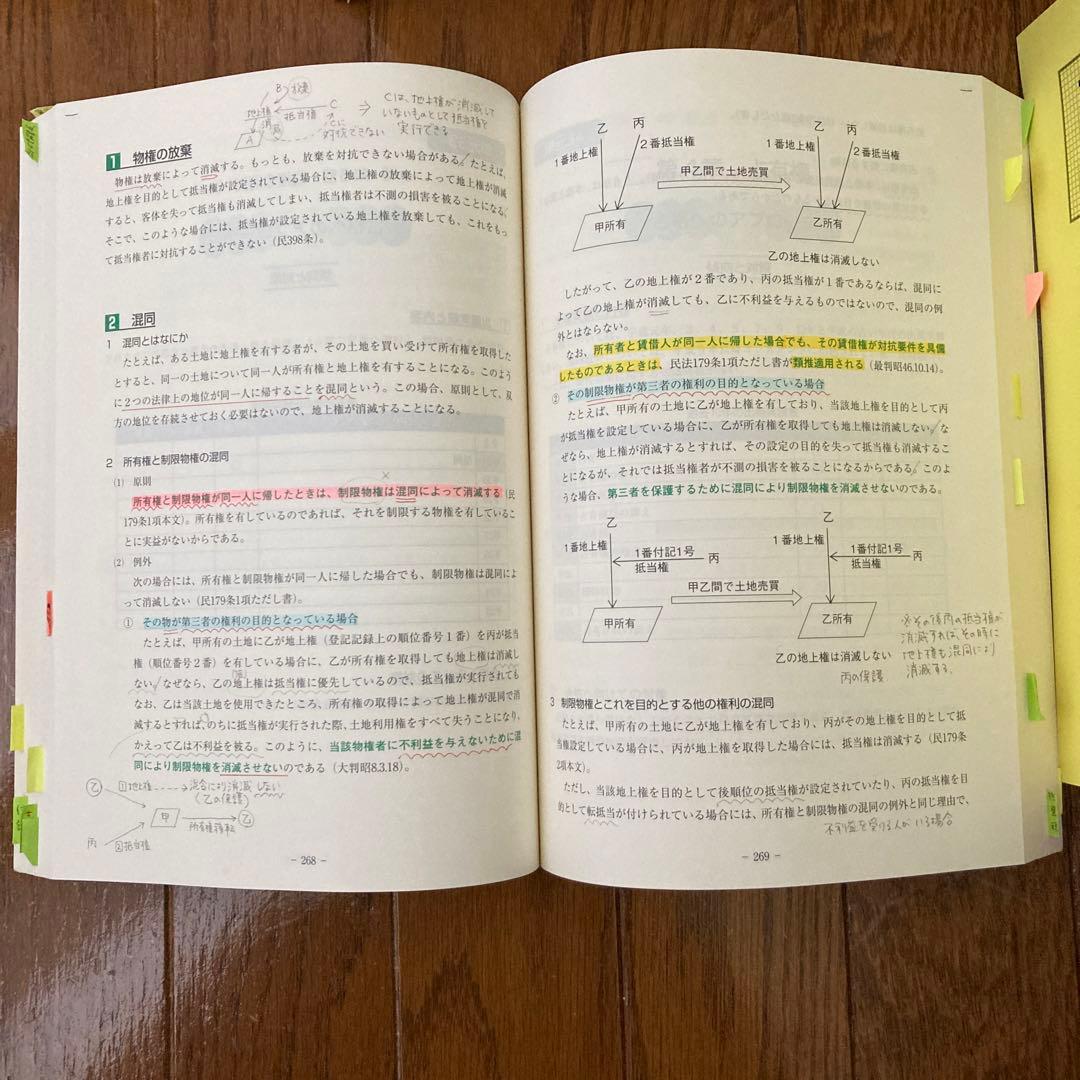 B 放棄
地上権 ← 抵当権 C
消滅
A
Cに対抗できない
⇒ Cは、地上権が消滅して
いないものとして抵当権を
実行できる
1 物権の放棄
物権は放棄によって消滅する。もっとも、放棄を対抗できない場合がある。たとえば、
地上権を目的として抵当権が設定されている場合に、地上権の放棄によって地上権が消滅
すると、客体を失って抵当権も消滅してしまい、抵当権者は不測の損害を被ることになる。
そこで、このような場合には、抵当権が設定されている地上権を放棄しても、これをもっ
て抵当権者に対抗することができない（民398条）。
2 混同
1 混同とはなにか
たとえば、ある土地に地上権を有する者が、その土地を買い受けて所有権を取得した
とすると、同一の土地について同一人が所有権と地上権を有することになる。このよう
に2つの法律上の地位が同一人に帰することを混同という。この場合、原則として、双
方の地位を存続させておく必要はないので、地上権が消滅することになる。
2 所有権と制限物権の混同
(1) 原則
所有権と制限物権が同一人に帰したときは、制限物権は混同によって消滅する（民
179条1項本文）。所有権を有しているのであれば、それを制限する物権を有しているこ
とに実益がないからである。
(2) 例外
次の場合には、所有権と制限物権が同一人に帰した場合でも、制限物権は混同によ
って消滅しない（民179条1項ただし書）。
① その物が第三者の権利の目的となっている場合
たとえば、甲所有の土地に乙が地上権（登記記録上の順位番号1番）を丙が抵当
権（順位番号2番）を有している場合に、乙が所有権を取得しても地上権は消滅し
ない。なぜなら、乙の地上権は抵当権に優先しているので、抵当権が実行されても
なお、乙は当該土地を使用できたところ、所有権の取得によって地上権が混同で消
滅するとすれば、のちに抵当権が実行された際、土地利用権をすべて失うことになり、
かえって乙は不利益を被る。このように、当該物権者に不利益を与えないために混
同により制限物権を消滅させないのである（大判昭8.3.18）。
乙 1地上権 混合により消滅しない
（乙の保護）
甲 所有権移転 乙
丙 2抵当権
− 268 −
乙 丙 乙 丙
1番地上権 2番抵当権 1番地上権 2番抵当権
甲乙間で土地売買
甲所有 乙所有
乙の地上権は消滅しない
したがって、乙の地上権が2番であり、丙の抵当権が1番であるならば、混同に
よって乙の地上権が消滅しても、乙に不利益を与えるものではないので、混同の例
外とはならない。
なお、所有者と賃借人が同一人に帰した場合でも、その賃借権が対抗要件を具備
したものであるときは、民法179条1項ただし書が類推適用される（最判昭46.10.14）。
② その制限物権が第三者の権利の目的となっている場合
たとえば、甲所有の土地に乙が地上権を有しており、当該地上権を目的として丙
が抵当権を設定している場合に、乙が所有権を取得しても地上権は消滅しない。な
ぜなら、地上権が消滅するとすれば、その設定の目的を失って抵当権も消滅するこ
とになるが、それでは抵当権者が不測の損害を被ることになるからである。このよ
うな場合、第三者を保護するために混同により制限物権を消滅させないのである。
乙 乙
1番地上権 1番付記1号 抵当権 丙 1番地上権 1番付記1号 抵当権 丙
甲乙間で土地売買
甲所有 乙所有
乙の地上権は消滅しない
丙の保護
※その後丙の抵当権が
消滅すれば、その時に
地上権も混同により
消滅する。
3 制限物権とこれを目的とする他の権利の混同
たとえば、甲所有の土地に乙が地上権を有しており、丙がその地上権を目的として抵
当権設定している場合に、丙が地上権を取得した場合には、抵当権は消滅する（民179条
2項本文）。
ただし、当該地上権を目的として後順位の抵当権が設定されていたり、丙の抵当権を目
的として転抵当が付けられている場合には、所有権と制限物権の混同の例外と同じ理由で、
不利益を受ける人がいる場合
− 269 −